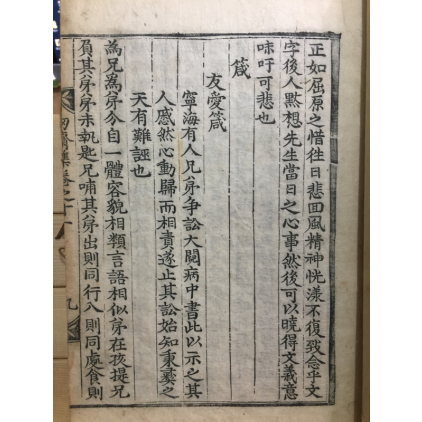 正如屈原之惜往日悲回風精神恍漾不復致念乎文
字後人黙想先生當日之心事然後可以曉得文義意
味吁可悲也
箴
友愛箴
寧海有人兄弟争訟大鬨病中書此以示之其
人感然心動歸而相責遂止其訟始知秉彛之
天有難誣也
為兄為弟分自一體容貌相類言語相似弟在孩提兄
負其弟弟未執匙兄哺其弟出則同行入則同處食則
齋集卷之十
九